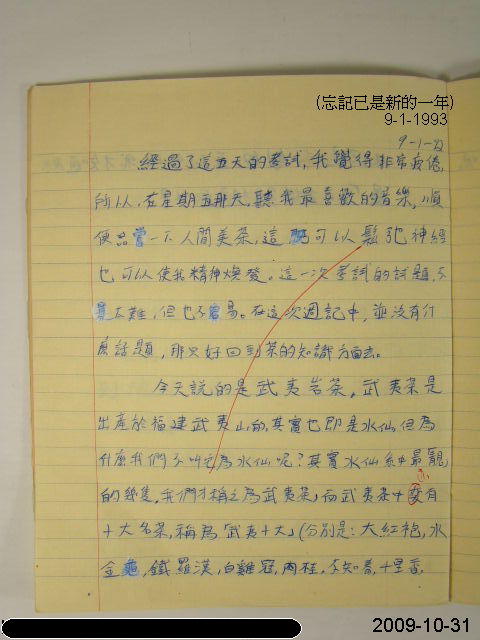 (忘記已是新的一年)
9-1-1993
9-1-93
經過了這五天的考試,我覺得非常疲倦,
所以,在星期五那天,聽我最喜歡的音樂,順
便品嘗一下人間美茶,這既可以鬆弛神經
也可以使我精神煥發。這一次考試的試題,不
算太難,但也不容易。在這次週記中,並沒有什
麼話題,那只好回到茶的知識方面去。
今天說的是武夷岩茶,武夷茶是
出產於福建武夷山的,其實也即是水仙,但為
什麼我們不叫之為水仙呢?其實水仙系中最靚
的幾隻,我們才稱之為武夷茶,而武夷茶中有
十大名茶,稱為「武夷十大」(分別是:大紅袍,水
金龜,鐵羅漢,白雞冠,肉桂,不知春,十里香,
2009-10-31